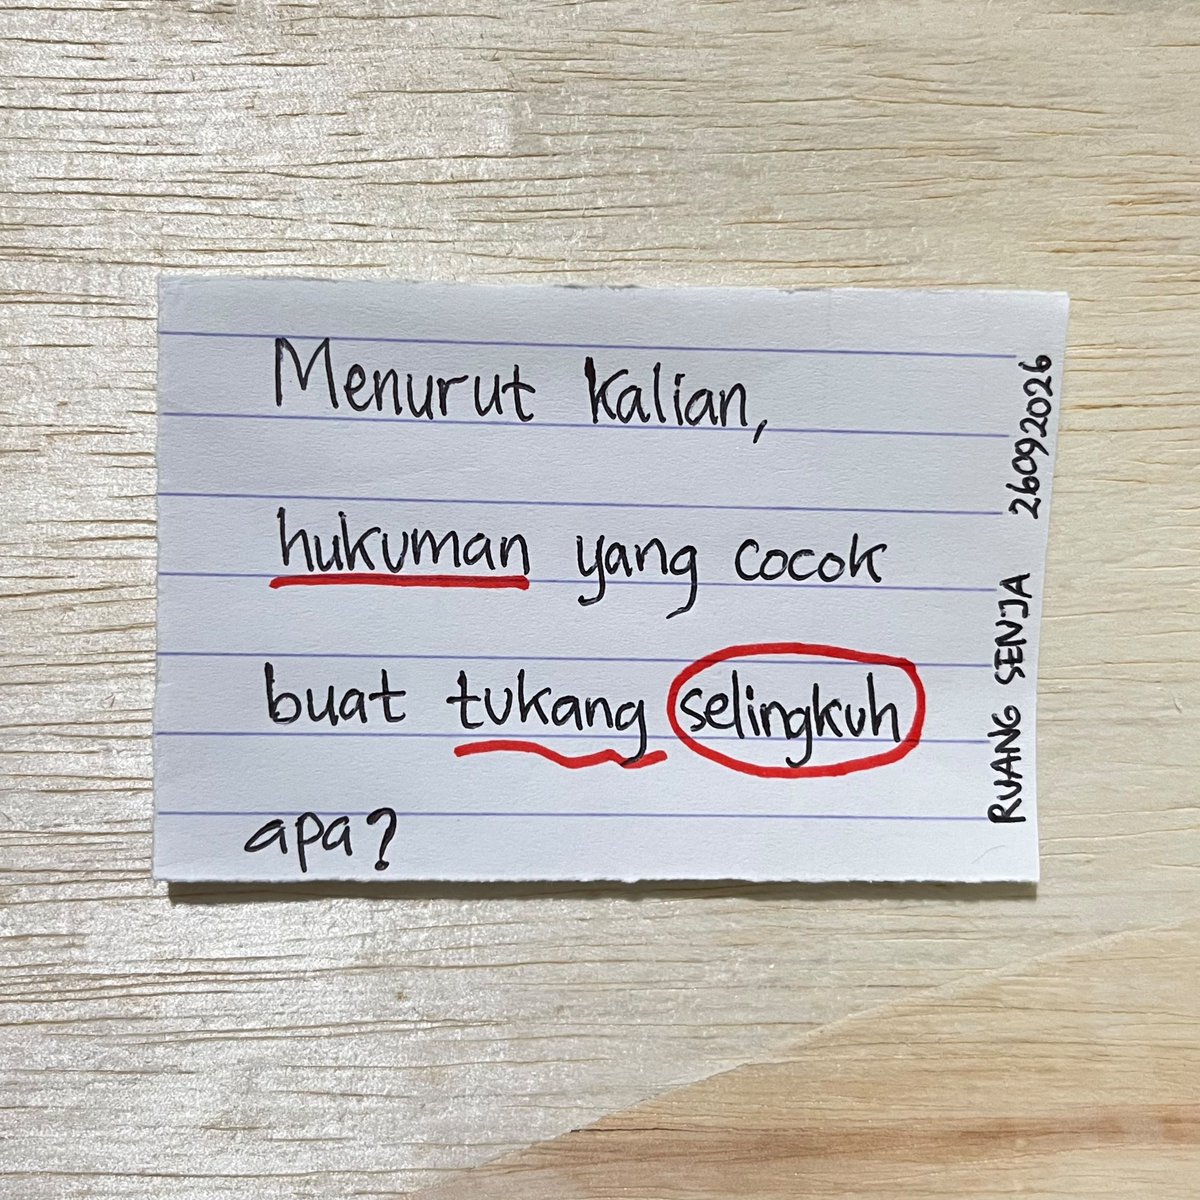 Menurut kalian,
hukuman yang cocok
buat tukang selingkuh
apa?
RUANG SENJA 26092026